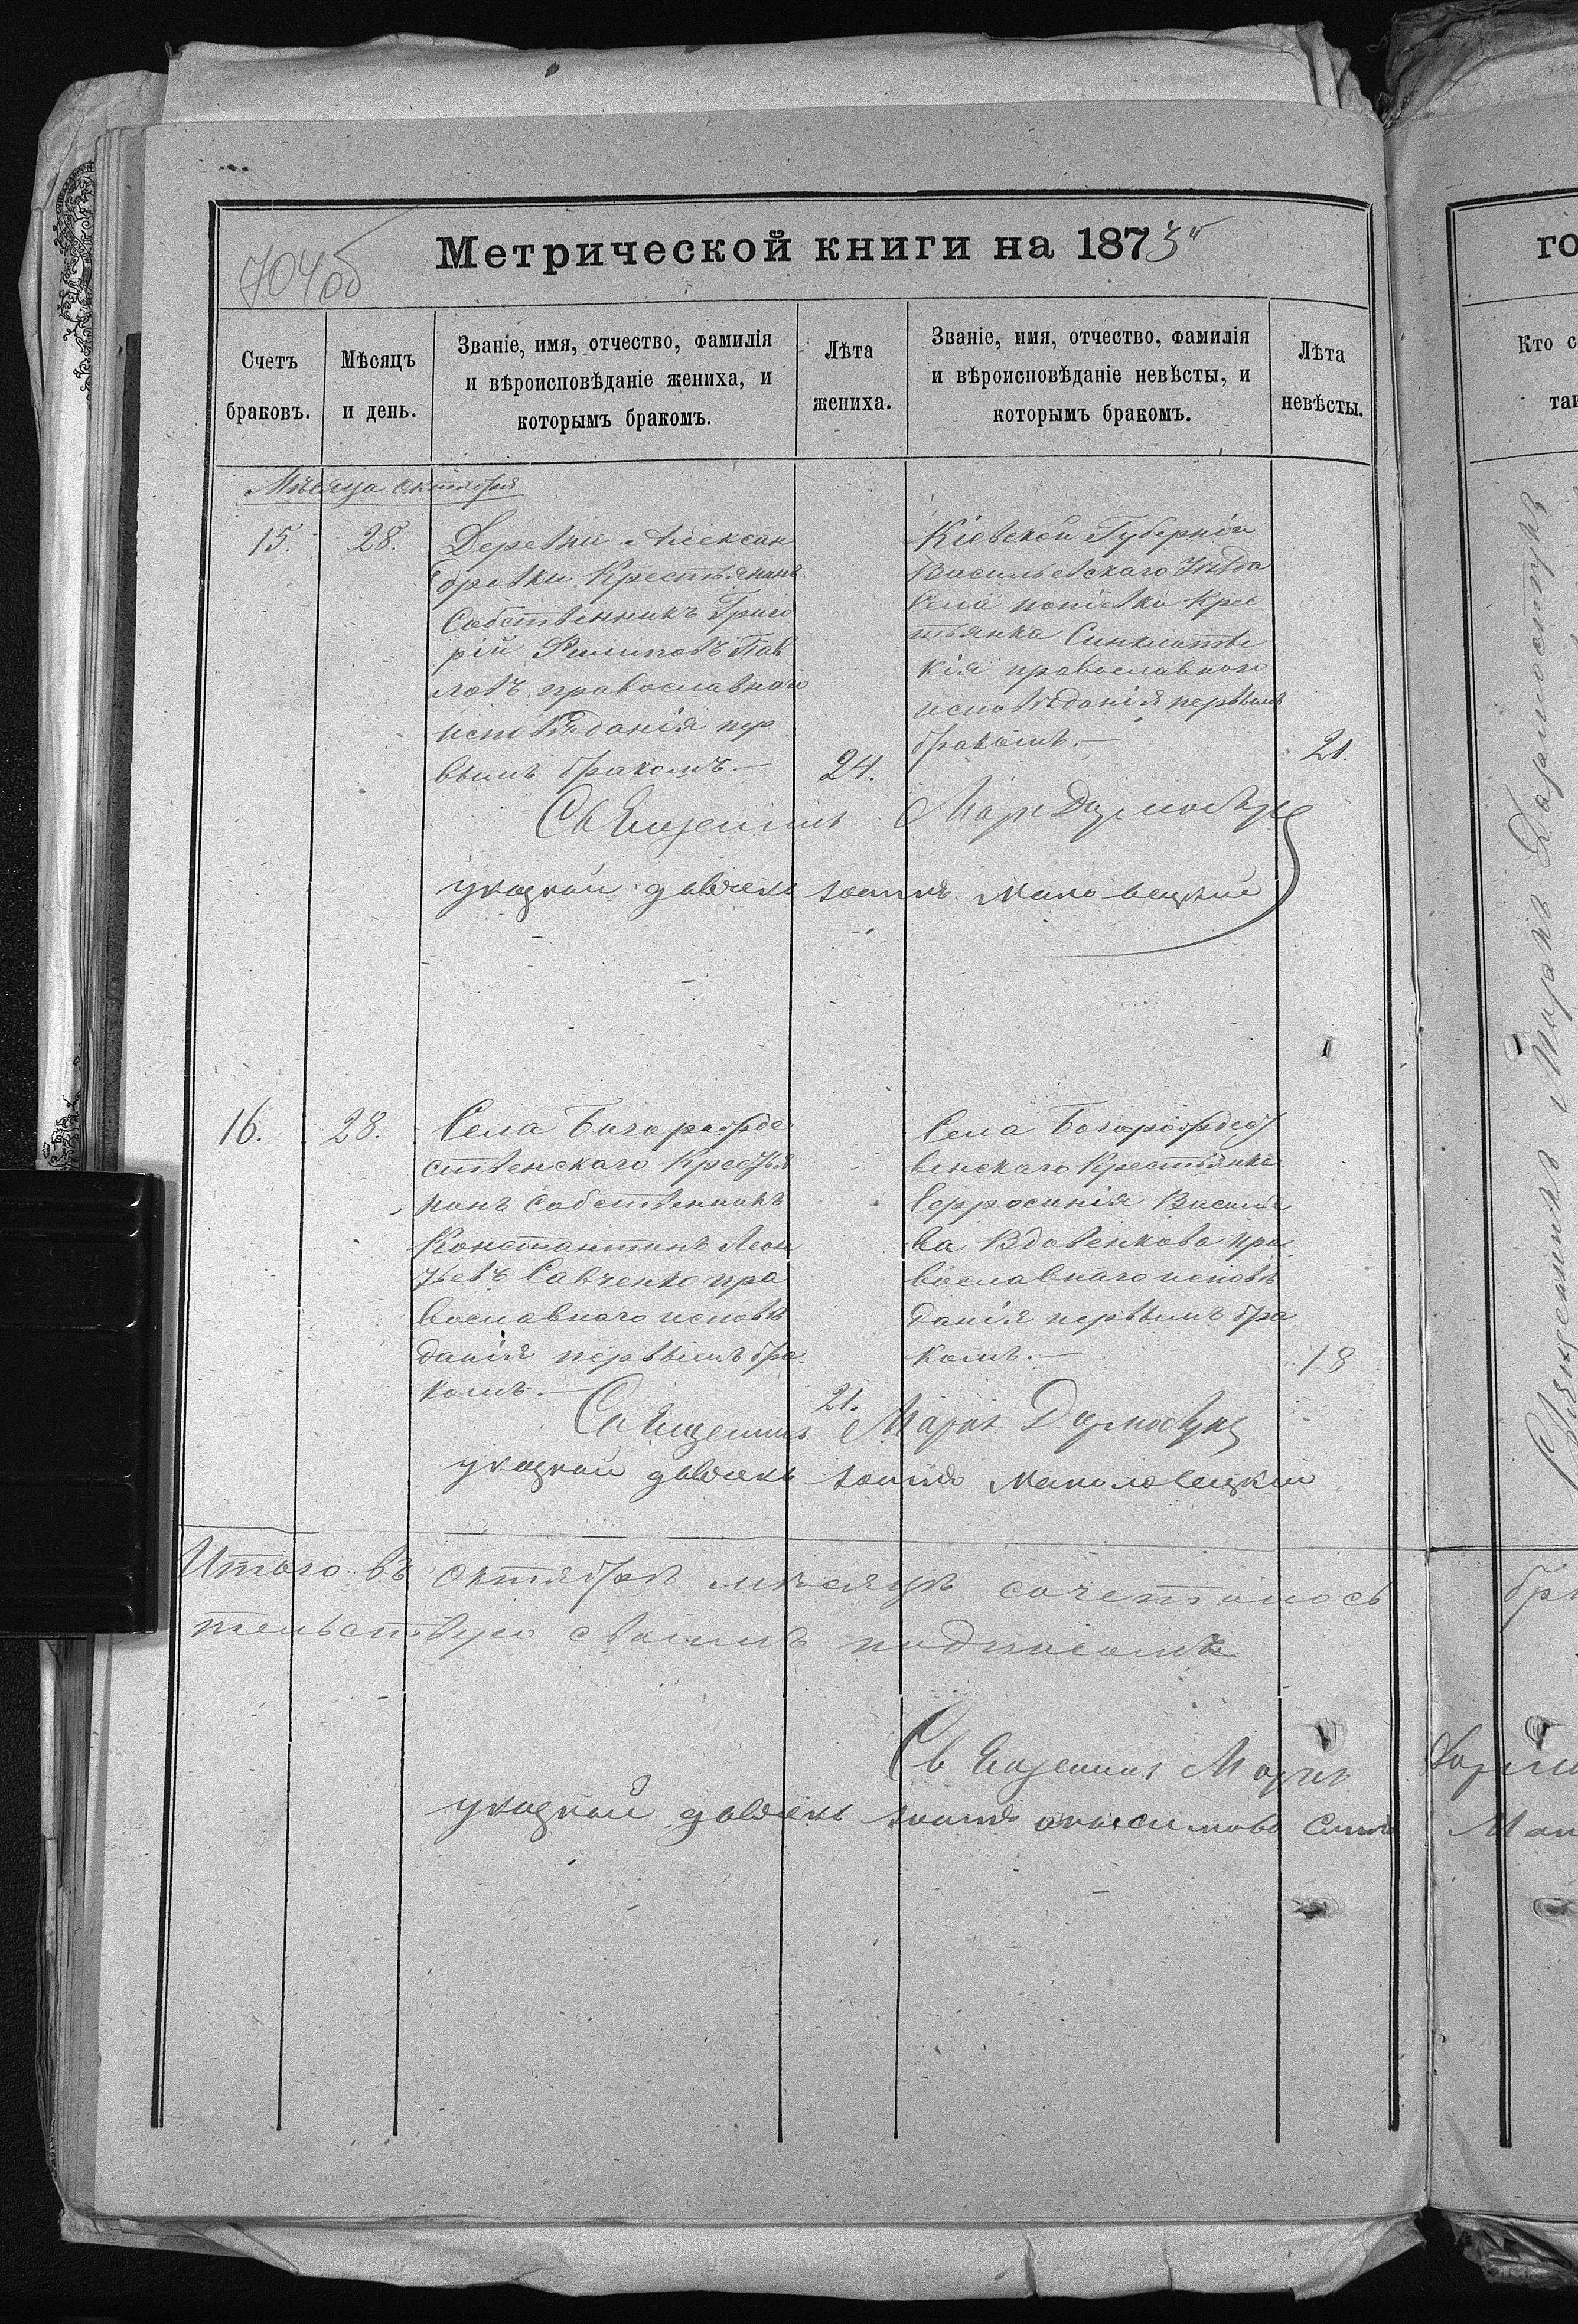 704 об
Метрической книги на 1873
го
Счетъ браковъ.
Мѣсяцъ и день.
Званіе, имя, отчество, фамилія
и вѣроисповѣданіе жениха, и
которымъ бракомъ.
Лѣта
жениха.
Званіе, имя, отчество, фамилія
и вѣроисповѣданіе невѣсты, и
которымъ бракомъ.
Лѣта
невѣсты.
Кто с
Мѣсяца октября
15.
28.
Деревни Алексан
дровки Крестьянинъ
Собственникъ Григо
рій Филиповъ Пав
ловъ, православнаго
исповѣданія пер
вымъ бракомъ.—
24.
Кіевской Губерніи
Васильевскаго Уѣзда
Села
Крес
тьянка
кія православнаго
исповѣданія первымъ
бракомъ.—
21.
Священникъ
указный дьячекъ
16.
28.
Села Богорожде
ственскаго Крестья
нинъ Собственникъ
Константинъ Леон
тьевъ Савченко пра
вославнаго исповѣ
данія первымъ бра
комъ.—
21.
Села Богорождест
венскаго Крестьянка
Евфросинія Василіе
ва Вдовенкова пра
вославнаго исповѣ
данія первымъ бра
комъ.—
18
Священникъ Маркъ
указный дьячекъ
Итого въ октябрѣ мѣсяцѣ сочеталось
бра
тельствую своимъ подписомъ
Священникъ Маркъ
указный дьячекъ
Священникъ Маркъ